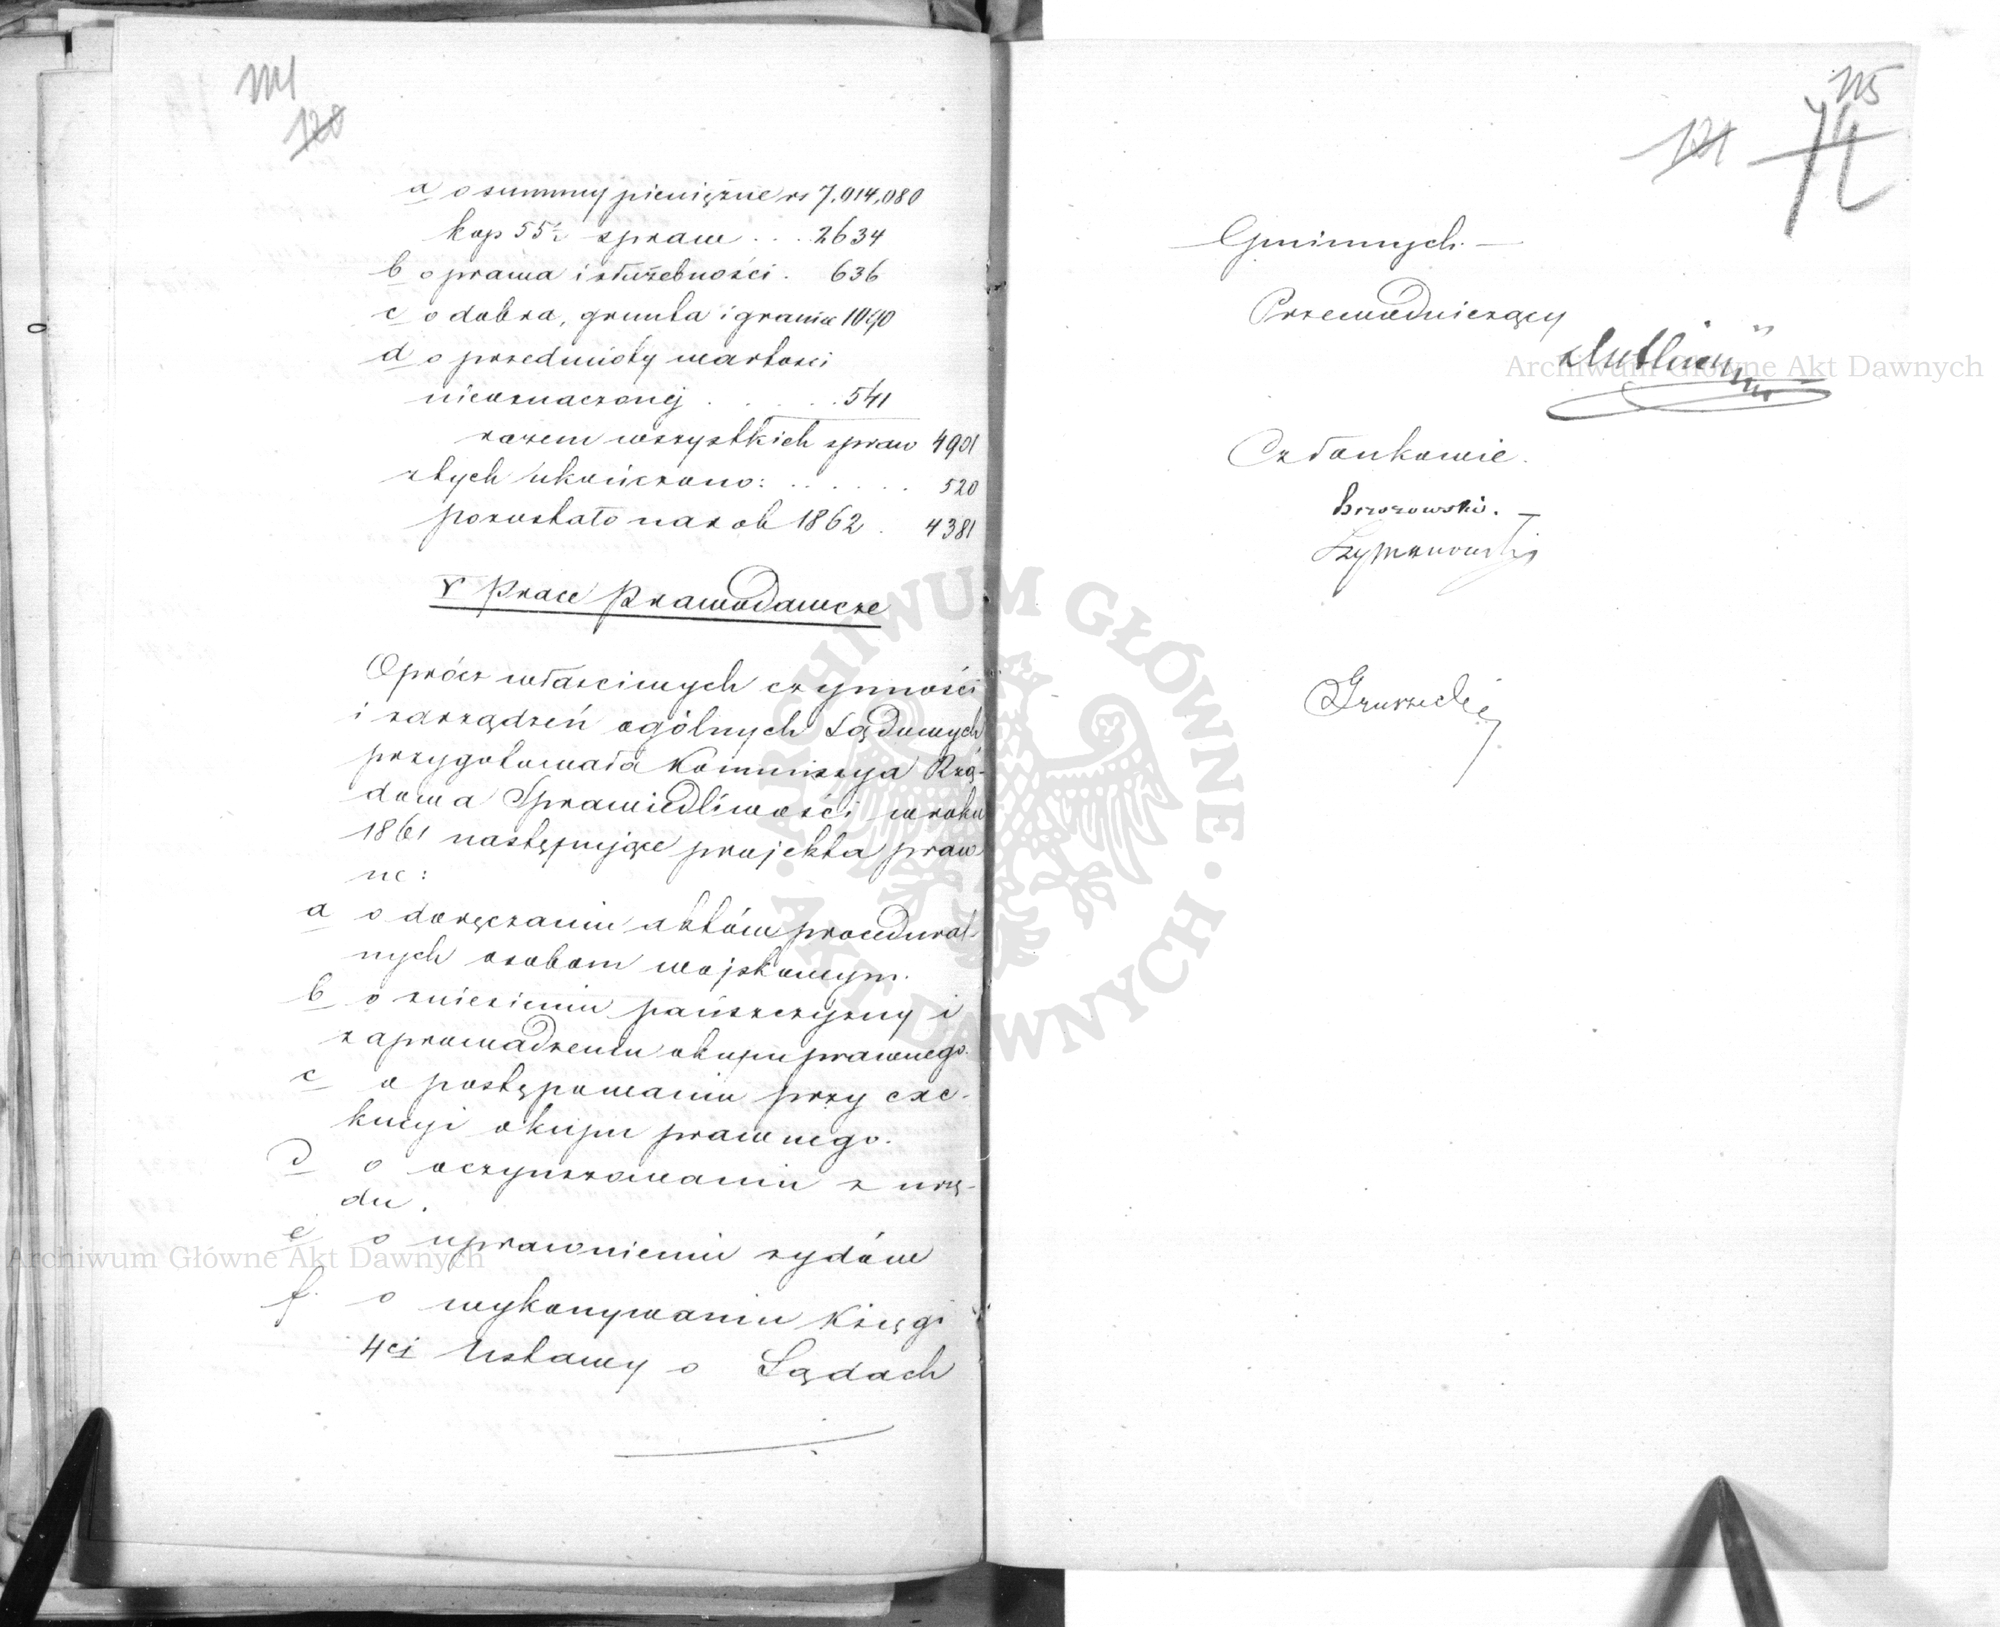 114
120
a o summy pieniężne rs 7,014,080
kop 55½ spraw . . . 2634
b o prawa i służebności . 636
c o dobra, grunta i granice 1090
d o przedmioty wartości
nieoznaczonej . . . . . 541
razem wszystkich spraw 4901
z tych ukończono: . . . . . . 520
pozostało na rok 1862 . 4381
V Prace Prawodawcze
Oprócz właściwych czynności
i zarządzeń ogólnych Sądowych
przygotowała Kommissya Rzą-
dowa Sprawiedliwości w roku
1861 następujące projekta praw
ne:
a o doręczaniu aktów procedural-
nych osobom wojskowym.
b o zniesieniu pańszczyzny i
zaprowadzeniu okupu prawnego.
c o postępowaniu przy exe-
kucyi okupu prawnego.
d o oczynszowaniu z urzę-
du.
e o uprawnieniu żydów
f. o wykonywaniu Księgi
4ej Ustawy o Sądach
115
121 74
Gminnych. —
Przewodniczący
Członkowie.
Brzozowski. —
Szymanowski
Gruszecki
Archiwum Główne Akt Dawnych
Archiwum Główne Akt Dawnych
ARCHIWUM GŁÓWNE · AKT DAWNYCH ·